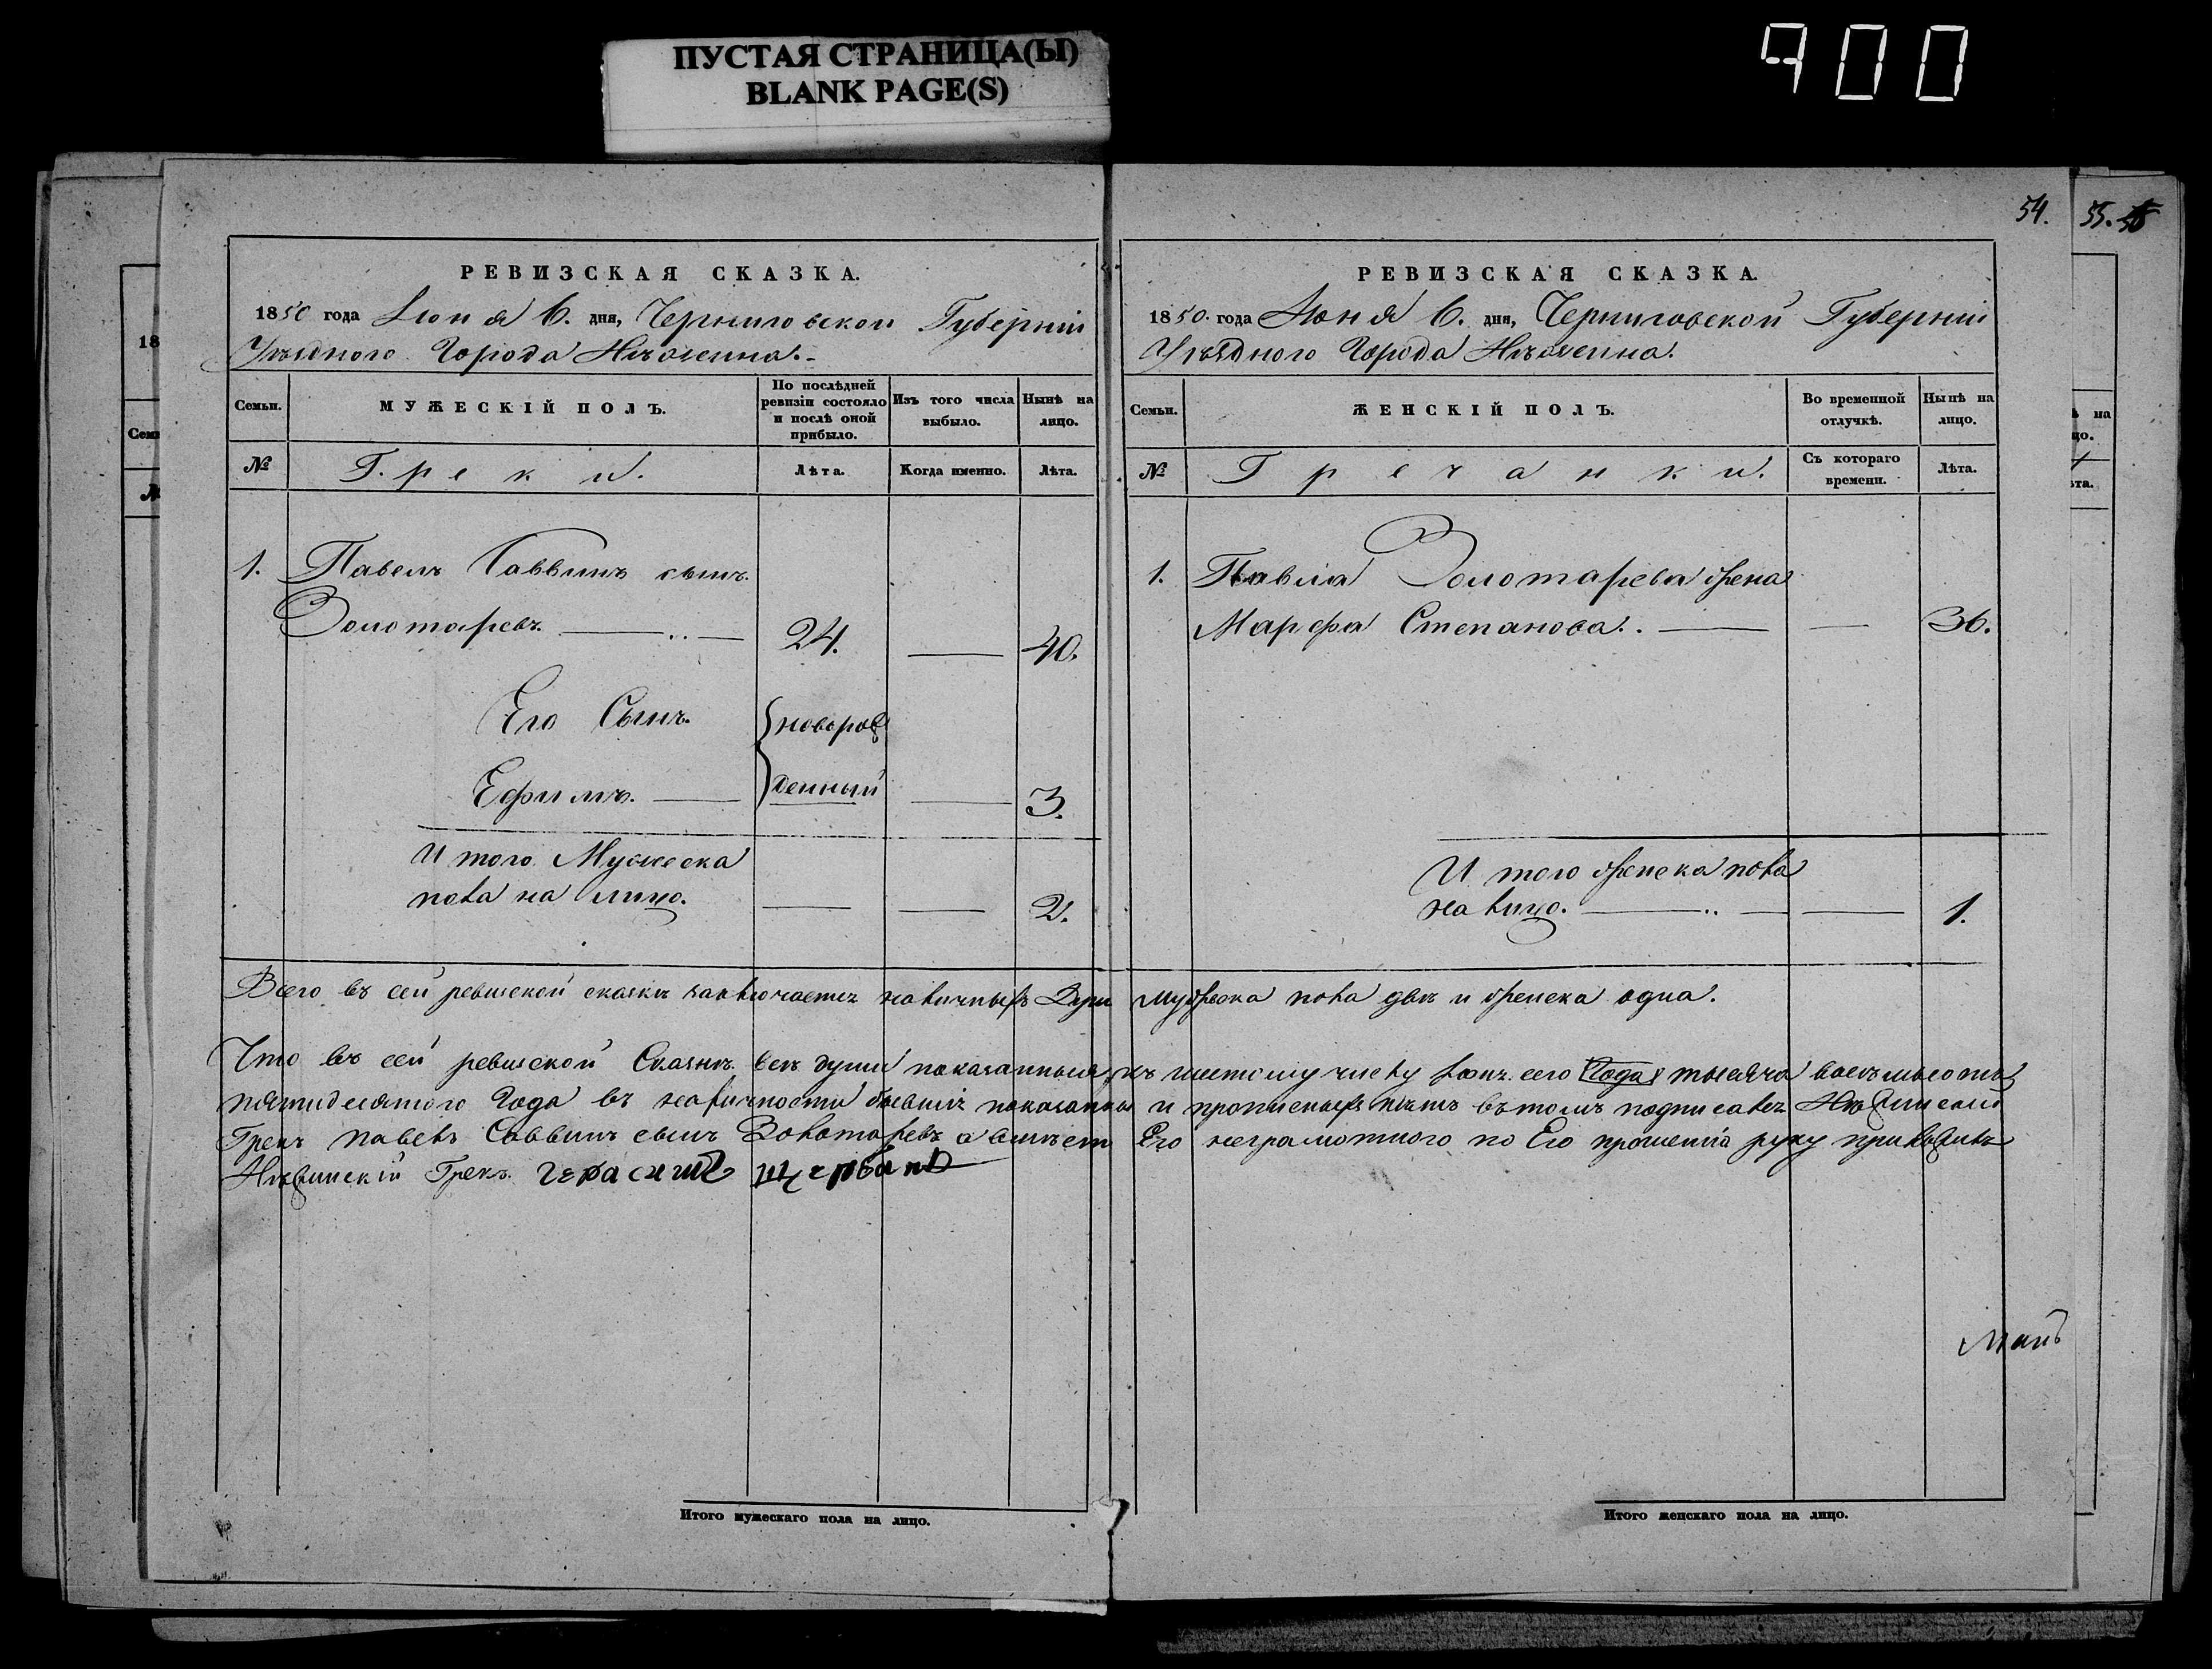 ПУСТАЯ СТРАНИЦА(Ы)
BLANK PAGE(S)
900
54.
55.
РЕВИЗСКАЯ СКАЗКА.
1850 года Июня 6. дня, Черниговской Губерніи
Уѣзднаго Города Нѣжина.
Семьи.
МУЖЕСКІЙ ПОЛЪ.
По послѣдней ревизіи состояло и послѣ оной прибыло.
Изъ того числа выбыло.
Нынѣ на лицо.
№
Греки.
Лѣта.
Когда именно.
Лѣта.
1. Павелъ Саввинъ сынъ
Золотаревъ. 24. 40.
Его Сынъ новорож
Ефимъ. денный 3.
И того Мужеска
пола на лицо. 2.
РЕВИЗСКАЯ СКАЗКА.
1850. года Июня 6. дня, Черниговской Губерніи
Уѣзднаго Города Нѣжина.
Семьи.
ЖЕНСКІЙ ПОЛЪ.
Во временной отлучкѣ.
Нынѣ на лицо.
№
Гречанки.
Съ котораго времени.
Лѣта.
1. Павла Золотарева жена
Марфа Степанова. 36.
И того женска пола
на лицо. 1.
Всего въ сей ревизской сказки заключается наличныхъ Душ мужеска пола двѣ и женска одна.
Что въ сей ревиской Сказкѣ всѣ души показанныя къ шестому числу Іюня сего Года тысяча восемьсотъ
пятидесятого Года въ наличности бывшія показаны и прописныхъ нѣтъ въ томъ подписался Нѣжинский
Грекъ Павелъ Саввинъ сынъ Золотаревъ а вместо Его неграмотного по Его прошенію руку приложилъ
Нѣжинскій Грекъ Герасимъ Щербань
Итого мужескаго пола на лицо.
Итого женскаго пола на лицо.